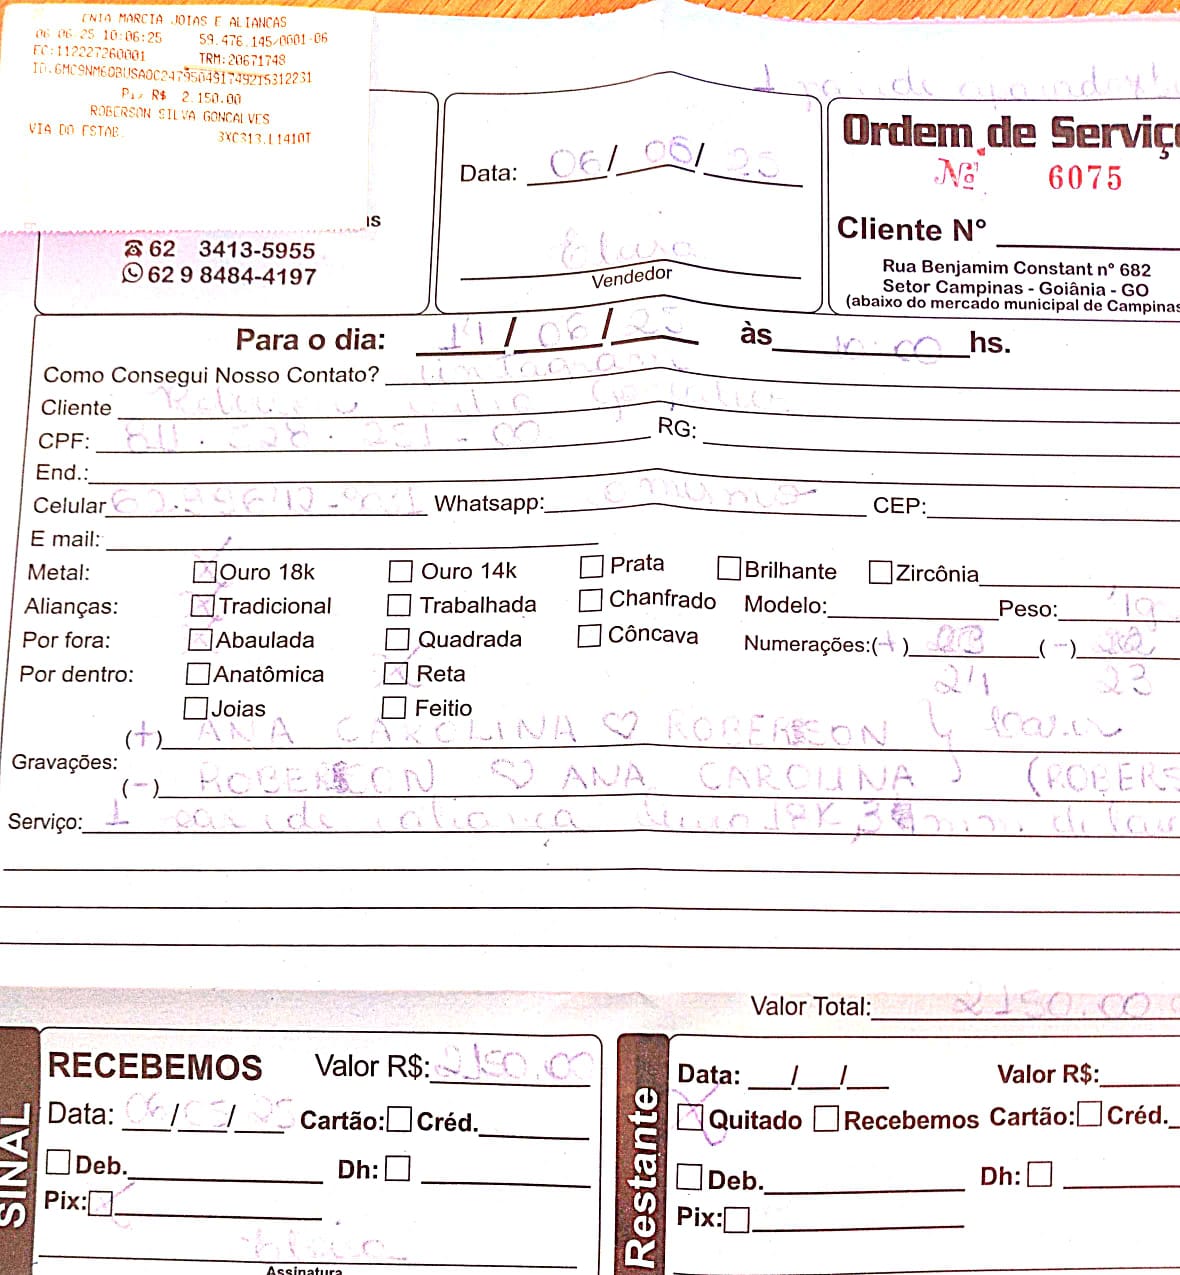 ENIA MARCIA JOIAS E ALIANCAS
06.06.25 10:06:25 59.476.145/0001-06
EC:112227260001 TRM:20671748
Pix R$ 2.150.00
ROBERSON SILVA GONCALVES
VIA DO ESTAB.
1 par de
Data: 06/06/25
Ordem de Serviço
Nº 6075
Cliente Nº
Vendedor
62 3413-5955
62 9 8484-4197
Rua Benjamim Constant nº 682
Setor Campinas - Goiânia - GO
(abaixo do mercado municipal de Campinas
Para o dia: 14/06/25 às 10:00 hs.
Como Consegui Nosso Contato?
Cliente
CPF: RG:
End.:
Celular Whatsapp: CEP:
E mail:
Metal: Ouro 18k Ouro 14k Prata Brilhante Zircônia
Alianças: Tradicional Trabalhada Chanfrado Modelo: Peso:
Por fora: Abaulada Quadrada Côncava Numerações:(+) 23 (-) 22
Por dentro: Anatômica Reta 24 23
Joias Feitio
Gravações:
(+) ANA CAROLINA ♡ ROBERSON
(-) ROBERSON ♡ ANA CAROLINA (ROBERS
Serviço: 1 par de aliança 18K
Valor Total: 2150.00
SINAL
RECEBEMOS Valor R$: 2150.00
Data: Cartão: Créd.
Deb. Dh:
Pix:
Assinatura
Restante
Data: Valor R$:
Quitado Recebemos Cartão: Créd.
Deb. Dh:
Pix: